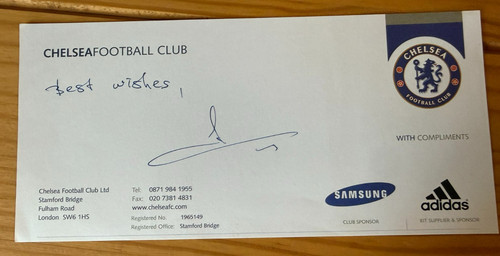 CHELSEAFOOTBALL CLUB
Best wishes,
CHELSEA
FOOTBALL CLUB
WITH COMPLIMENTS
Chelsea Football Club Ltd
Stamford Bridge
Fulham Road
London SW6 1HS
Tel: 0871 984 1955
Fax: 020 7381 4831
www.chelseafc.com
Registered No: 1965149
Registered Office: Stamford Bridge
SAMSUNG
CLUB SPONSOR
adidas
KIT SUPPLIER & SPONSOR